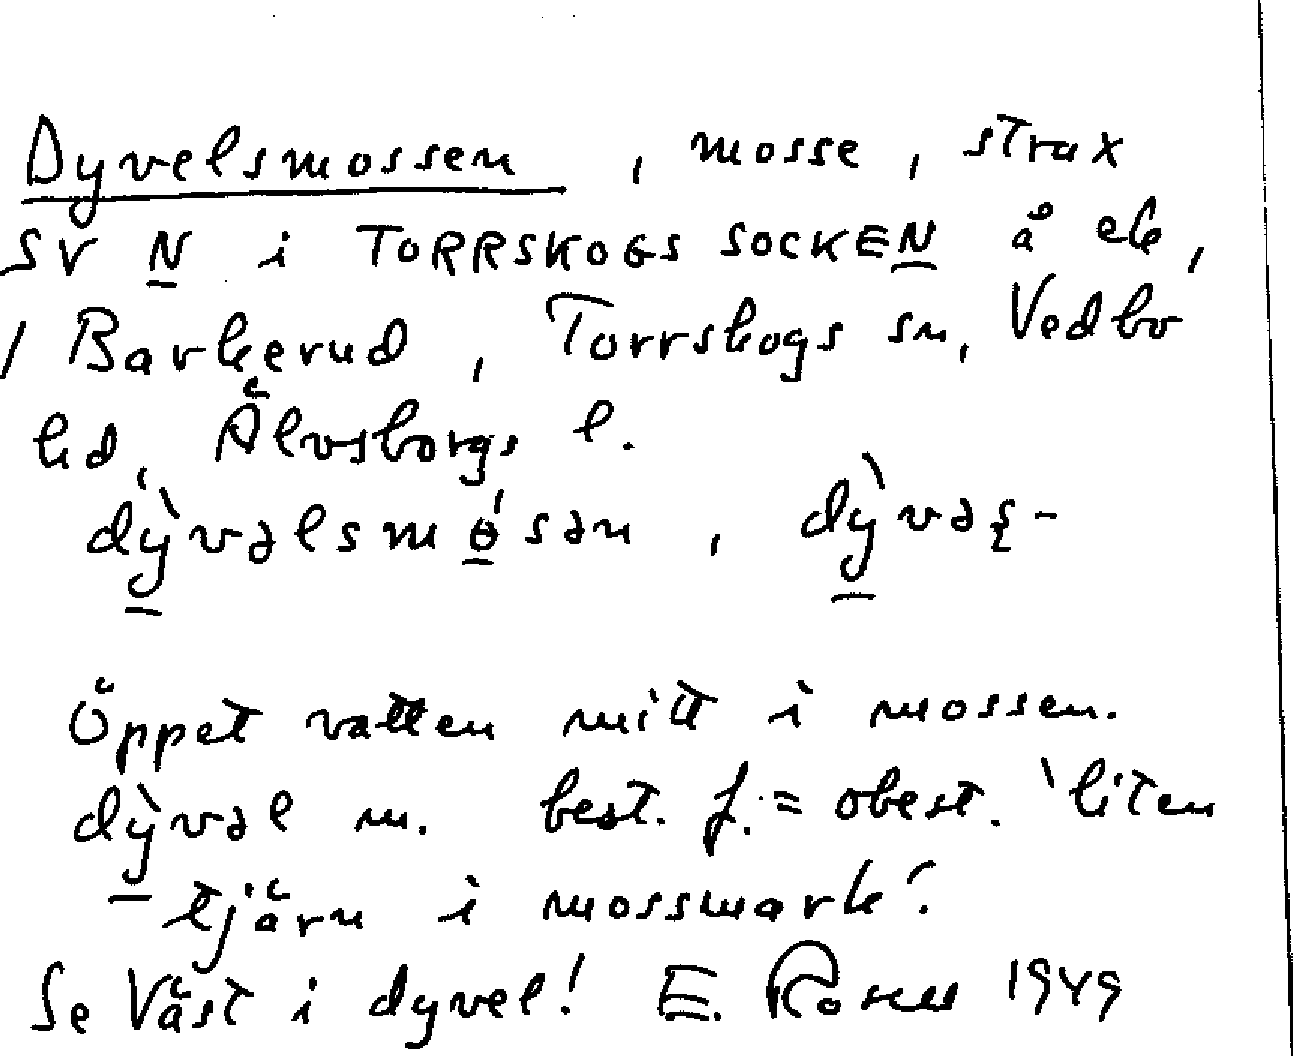 Dyvelsmossen, mosse, strax
SV N i TORRSKOGS SOCKEN å ek,
/ Barkerud, Torrskogs sn, Vedbo
hd, Älvsborgs l.
dỳvəlsmɵ́sən, dỳvəʂ-
Öppet vatten mitt i mossen.
dỳvəl m. best. f. = obest. 'liten
tjärn i mossmark'.
Se Väst i dyvel! E. 1949